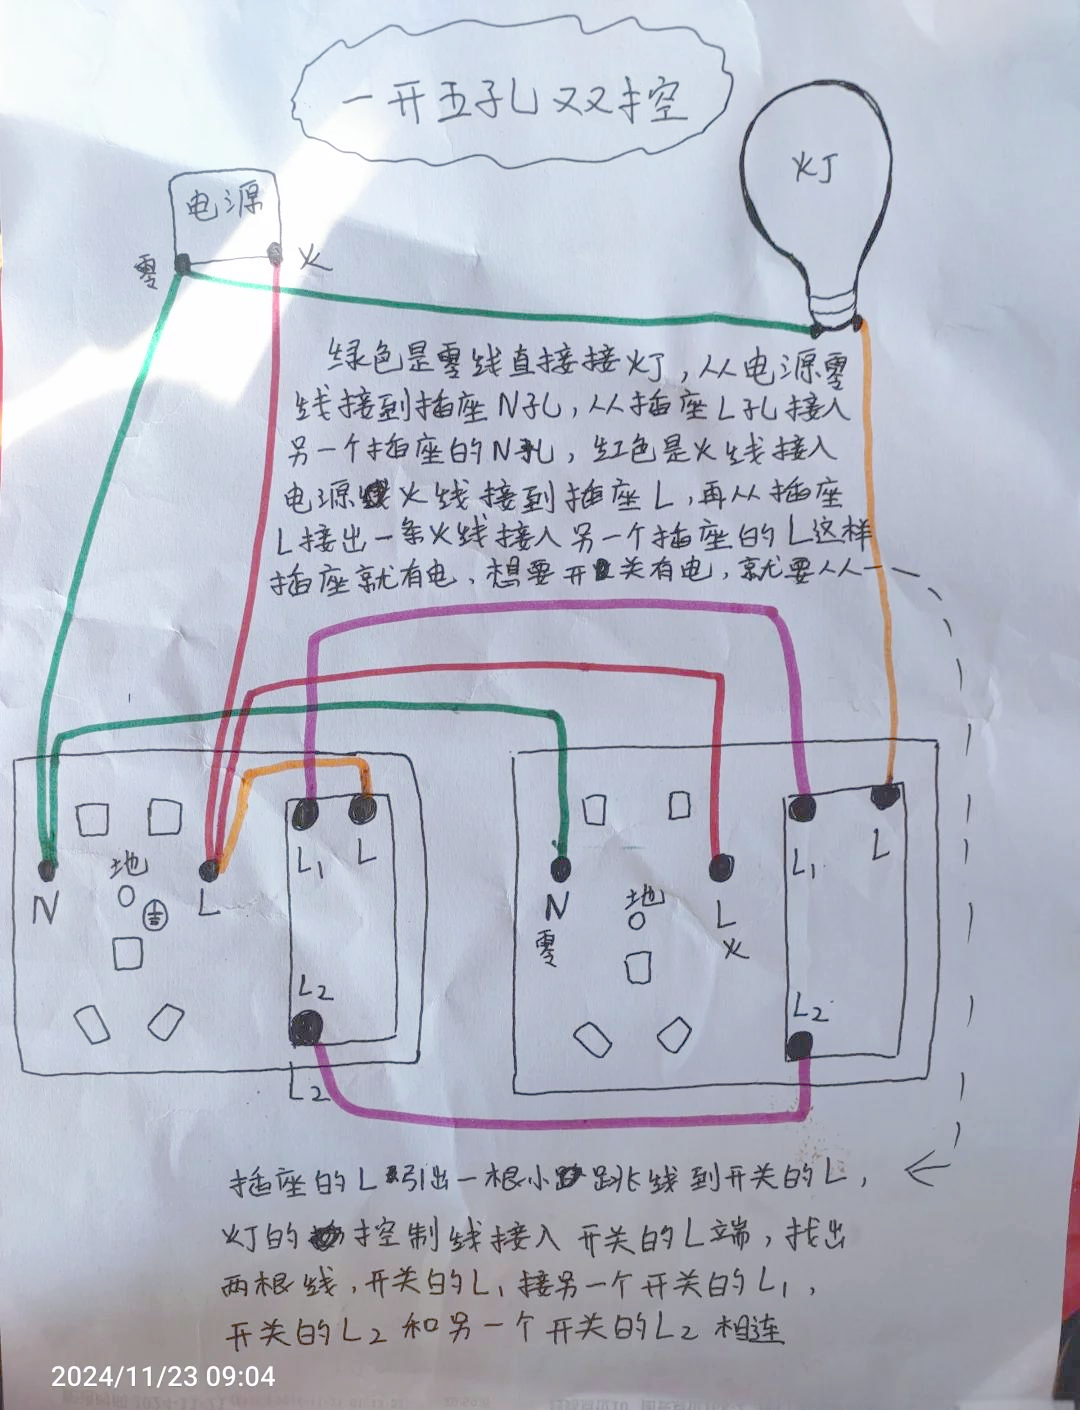 一开五孔双控
灯
电源
零
火
绿色是零线直接接灯，从电源零
线接到插座N孔，从插座L孔接入
另一个插座的N孔，红色是火线接入
电源火线接到插座L，再从插座
L接出一条火线接入另一个插座的L这样
插座就有电，想要开关有电，就要从
N
地
L
L1
L
L2
L2
N
零
地
L
火
L1
L
L2
插座的L引出一根小跳线到开关的L，
灯的控制线接入开关的L端，找出
两根线，开关的L1接另一个开关的L1，
开关的L2和另一个开关的L2相连
2024/11/23 09:04